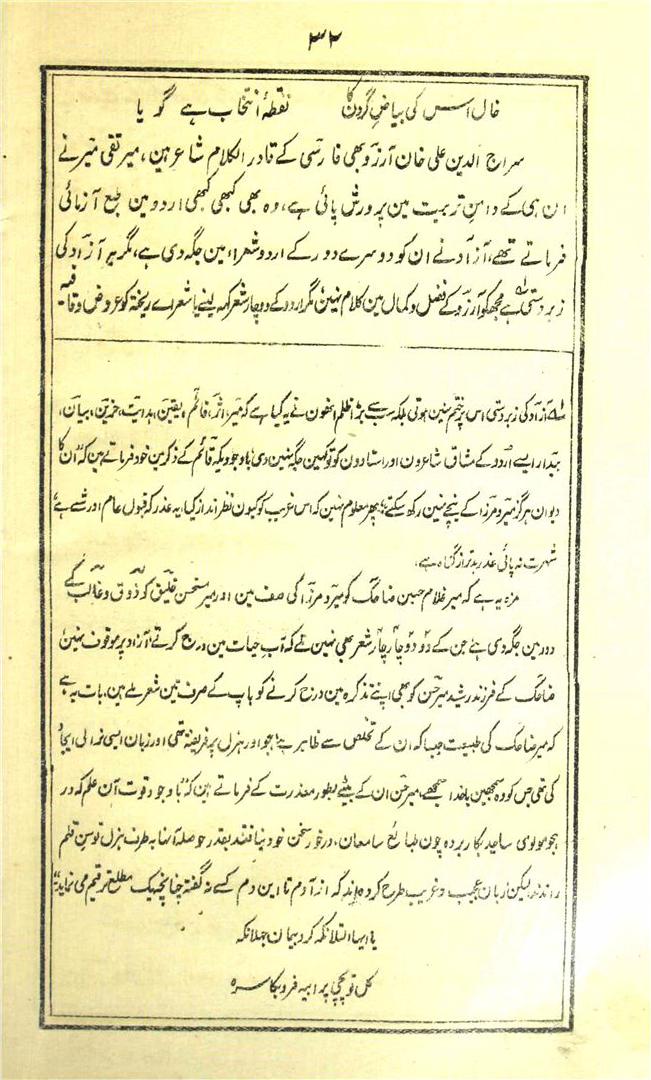 ۳۲
خال اس کی بیاضِ گردن کا نقطۂ انتخاب ہے گویا
سراج الدین علی خان آرزو بھی فارسی کے قادر الکلام شاعر ہین، میر تقی میر نے
ان ہی کے دامنِ تربیت مین پرورش پائی ہے، وہ بھی کبھی کبھی اردو مین طبع آزمائی
فرماتے تھے، آزاد نے ان کو دوسرے دور کے اردو شعراء مین جگہ دی ہے، مگر یہ آزاد کی
زبردستی ہے مجھکو آرزو کے فضل و کمال مین کلام نہین مگر اردو کے دو چار شعر کہہ لینے یا شعراے ریختہ کو عروض و قافیہ
لہ آزاد کی زبردستی اس پر ختم نہین ہوتی بلکہ سب سے بڑا ظلم انھون نے یہ کیا ہے کہ میر اثر، قائم، یقین، ہدایت، حزین، بیان،
بیدار ایسے اردو کے مشاق شاعرون اور استادون کو تو کہین جگہ نہین دی، باوجودیکہ قائم کے ذکر مین خود فرماتے ہین کہ "ان کا
دیوان ہرگز میر و مرزا کے نیچے نہین رکھ سکتے" پھر معلوم نہین کہ اس غریب کو کیون نظر انداز کیا، یہ عذر کہ قبول عام اور شے ہے
شہرت نہ پائی عذر بدتر از گناہ ہے،
مزہ یہ ہے کہ میر غلام حسین ضاحک کو میر و مرزا کی صف مین اور میر مستحسن خلیق کو ذوق و غالب کے
دور مین جگہ دی ہے جن کے دو دو چار چار شعر بھی نہین ملے کہ آبِ حیات مین درج کرتے، آزاد پر موقوف نہین
ضاحک کے فرزند رشید میر حسن کو بھی اپنے تذکرہ مین درج کرنے کو باپ کے صرف تین شعر ملے ہین، بات یہ ہے
کہ میر ضاحک کی طبیعت جیسا کہ ان کے تخلص سے ظاہر ہے ہجو اور ہزل پر فریفتہ تھی اور زبان ایسی نرالی ایجاد
کی تھی جس کو وہ سمجھین یا خدا سمجھے، میر حسن ان کے بیٹے بطور معذرت کے فرماتے ہین کہ "باوجود قوت آن علم کہ در
ہجو مولوی ساجد بکار بردہ چون طبائع سامعان، در خور سخن خود نیافتند بقدر حوصلہ آنہا بطرف ہزل توسن قلم
راندند لیکن زبان عجیب و غریب طرح کردہ اند کہ از آدم تا این دم کسے نہ گفتہ چنانچہ یک مطلع ترقیم می نماید"
یا ایہا
کل